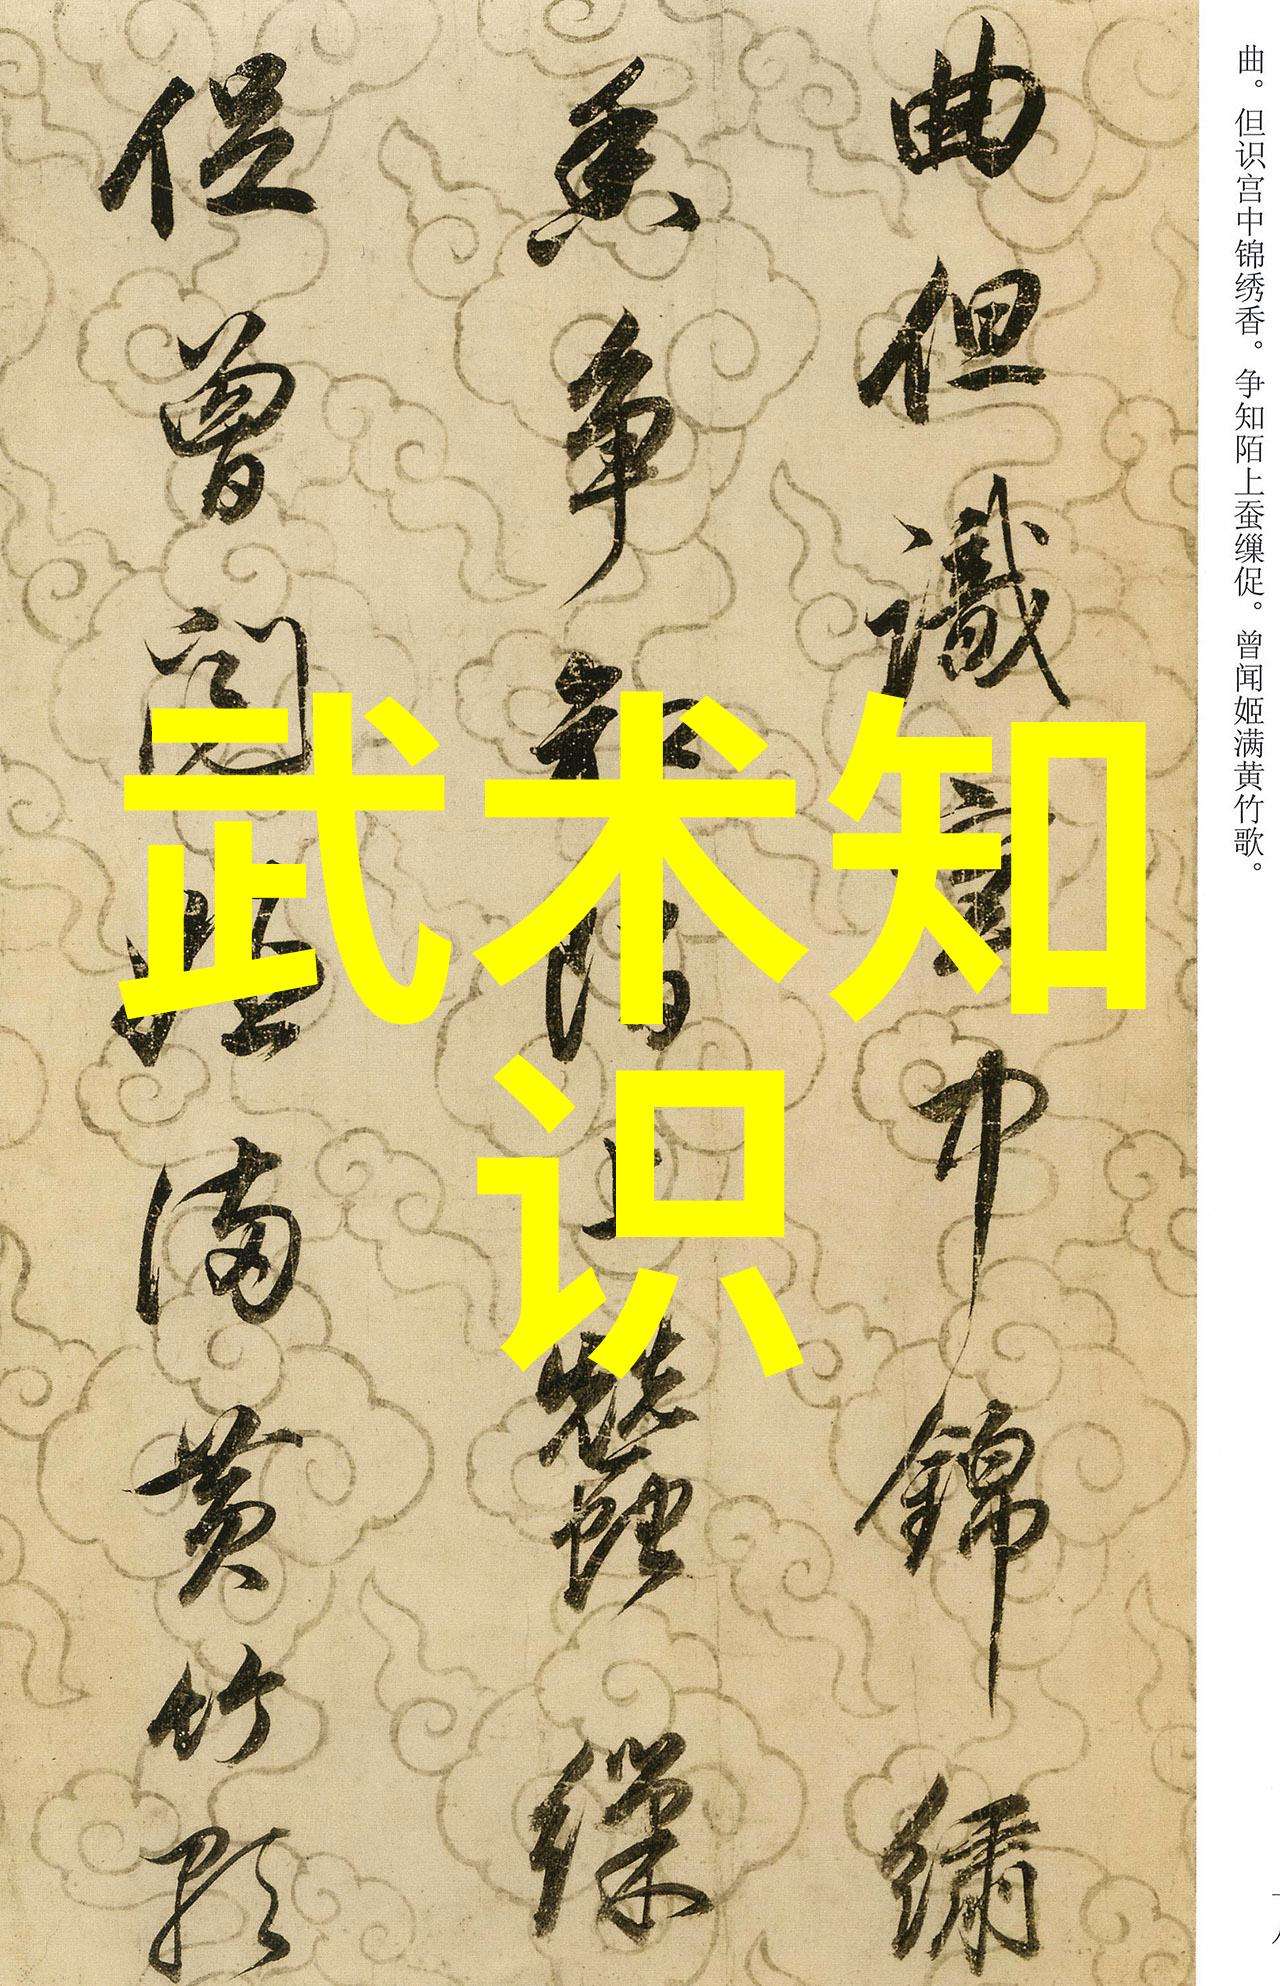 曲。但识宫中锦绣香。争知陌上蚕缫促。曾闻姬满黄竹歌。
曲但識宮中錦繡
香争知陌上蠶繅
促曾闻姬满黄竹歌
武术知
识